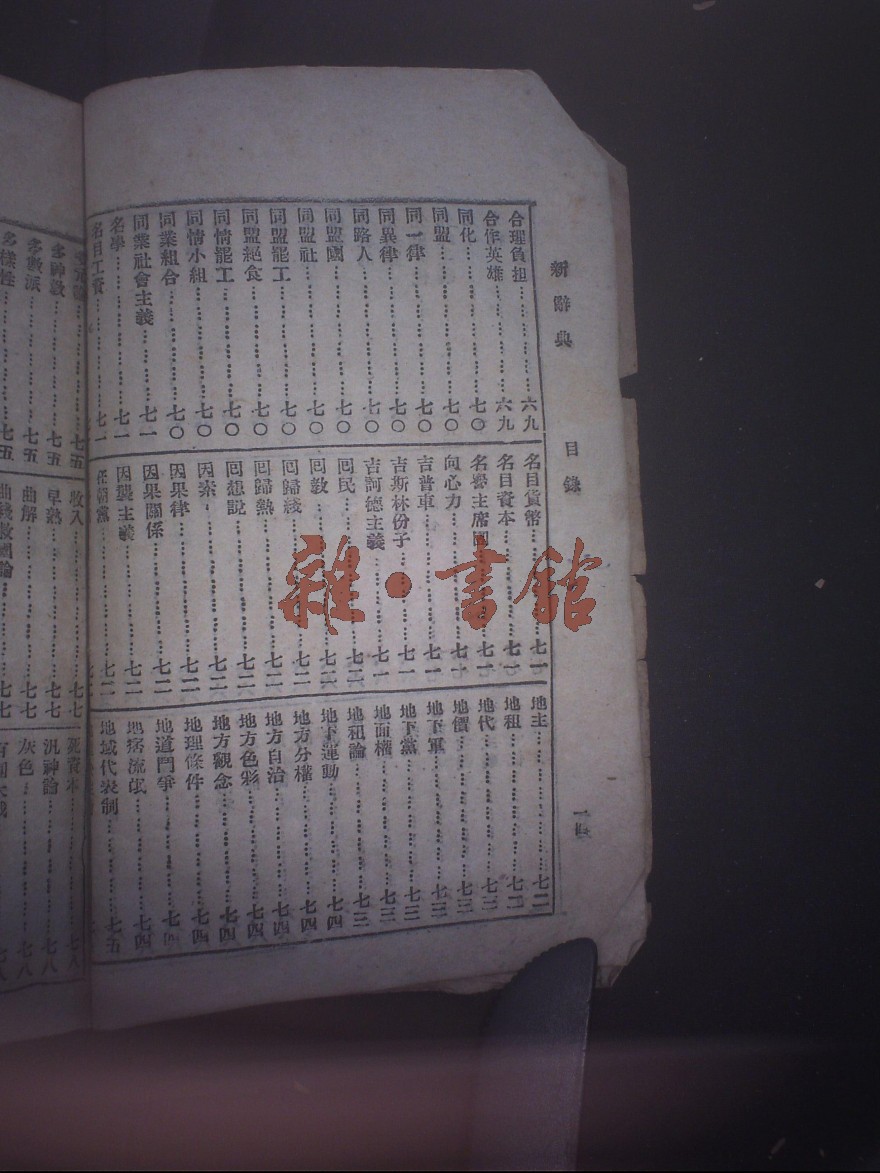 新辭典
目錄
一四
合理負担……六九
合作英雄……六九
同化……七〇
同盟……七〇
同一律……七〇
同異律……七〇
同路人……七〇
同盟國……七〇
同盟社……七〇
同盟罷工……七〇
同盟絕食……七〇
同情罷工……七〇
同情小組……七〇
同業組合……七〇
同業社會主義……七一
名學……七一
名目工資……七一
名目貨幣……七一
名目資本……七一
名譽主席團……七一
向心力……七一
吉普車……七一
吉斯林份子……七一
吉訶德主義……七一
回民……七二
回教……七二
回歸綫……七二
回歸熱……七二
回想說……七二
因素……七二
因果律……七二
因果關係……七二
因襲主義……七二
在朝黨
地主……七二
地租……七二
地代……七三
地價……七三
地下軍……七三
地下黨……七三
地面權……七三
地租論……七三
地下運動……七四
地方分權……七四
地方自治……七四
地方色彩……七四
地方觀念……七四
地理條件……七四
地道鬥爭……七四
地痞流氓……七四
地域代表制……七五
七五
多神教……七五
多數派……七五
多樣性……七五
收入……七七
早熟……七七
曲解……七七
曲綫救國論……七七
死資本……七八
汎神論……七八
灰色……七八
雜·書館